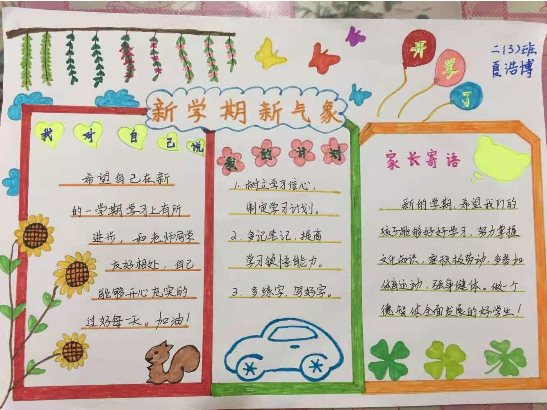 开学了
二(3)班
夏浩博
新学期新气象
我对自己说
希望自己在新
的一学期学习上有所
进步,和老师同学
友好相处,自己
能够开心充实的
过好每一天。加油!
我的计划
1. 树立学习信心,
制定学习计划。
2. 多记笔记,提高
学习敏捷能力。
3. 多练字,写好字。
家长寄语
新的学期,希望我们的
孩子能够好好学习,努力掌握
文化知识,要积极劳动,多参加
体育运动,强身健体。做一个
德智体全面发展的好学生!